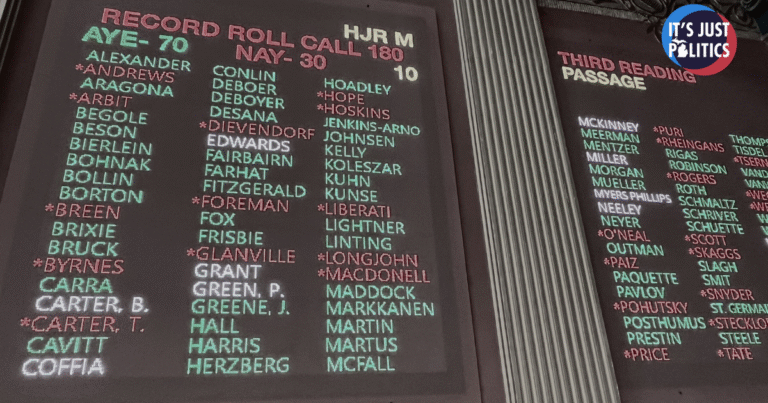 RECORD ROLL CALL 180
HJR M
AYE- 70
NAY- 30
10
ALEXANDER
*ANDREWS
ARAGONA
*ARBIT
BEGOLE
BESON
BIERLEIN
BOHNAK
BOLLIN
BORTON
*BREEN
BRIXIE
BRUCK
*BYRNES
CARRA
CARTER, B.
*CARTER, T.
CAVITT
COFFIA
CONLIN
DEBOER
DEBOYER
DESANA
*DIEVENDORF
EDWARDS
FAIRBAIRN
FARHAT
FITZGERALD
*FOREMAN
FOX
FRISBIE
*GLANVILLE
GRANT
GREEN, P.
GREENE, J.
HALL
HARRIS
HERZBERG
HOADLEY
*HOPE
*HOSKINS
JENKINS-ARNO
JOHNSEN
KELLY
KOLESZAR
KUHN
KUNSE
*LIBERATI
LIGHTNER
LINTING
*LONGJOHN
*MACDONELL
MADDOCK
MARKKANEN
MARTIN
MARTUS
MCFALL
THIRD READING
PASSAGE
MCKINNEY
MEERMAN
MENTZER
MILLER
MORGAN
MUELLER
MYERS PHILLIPS
NEELEY
NEYER
*O'NEAL
OUTMAN
*PAIZ
PAQUETTE
PAVLOV
*POHUTSKY
POSTHUMUS
PRESTIN
*PRICE
*PURI
*RHEINGANS
RIGAS
ROBINSON
*ROGERS
ROTH
SCHMALTZ
SCHRIVER
SCHUETTE
*SCOTT
*SKAGGS
SLAGH
SMIT
*SNYDER
ST. GERMAI
*STECKLO
STEELE
*TATE
THOMPS
TISDEL
*TSERN
VAND
VANW
*WE
*WE
IT'S JUST
POLITICS